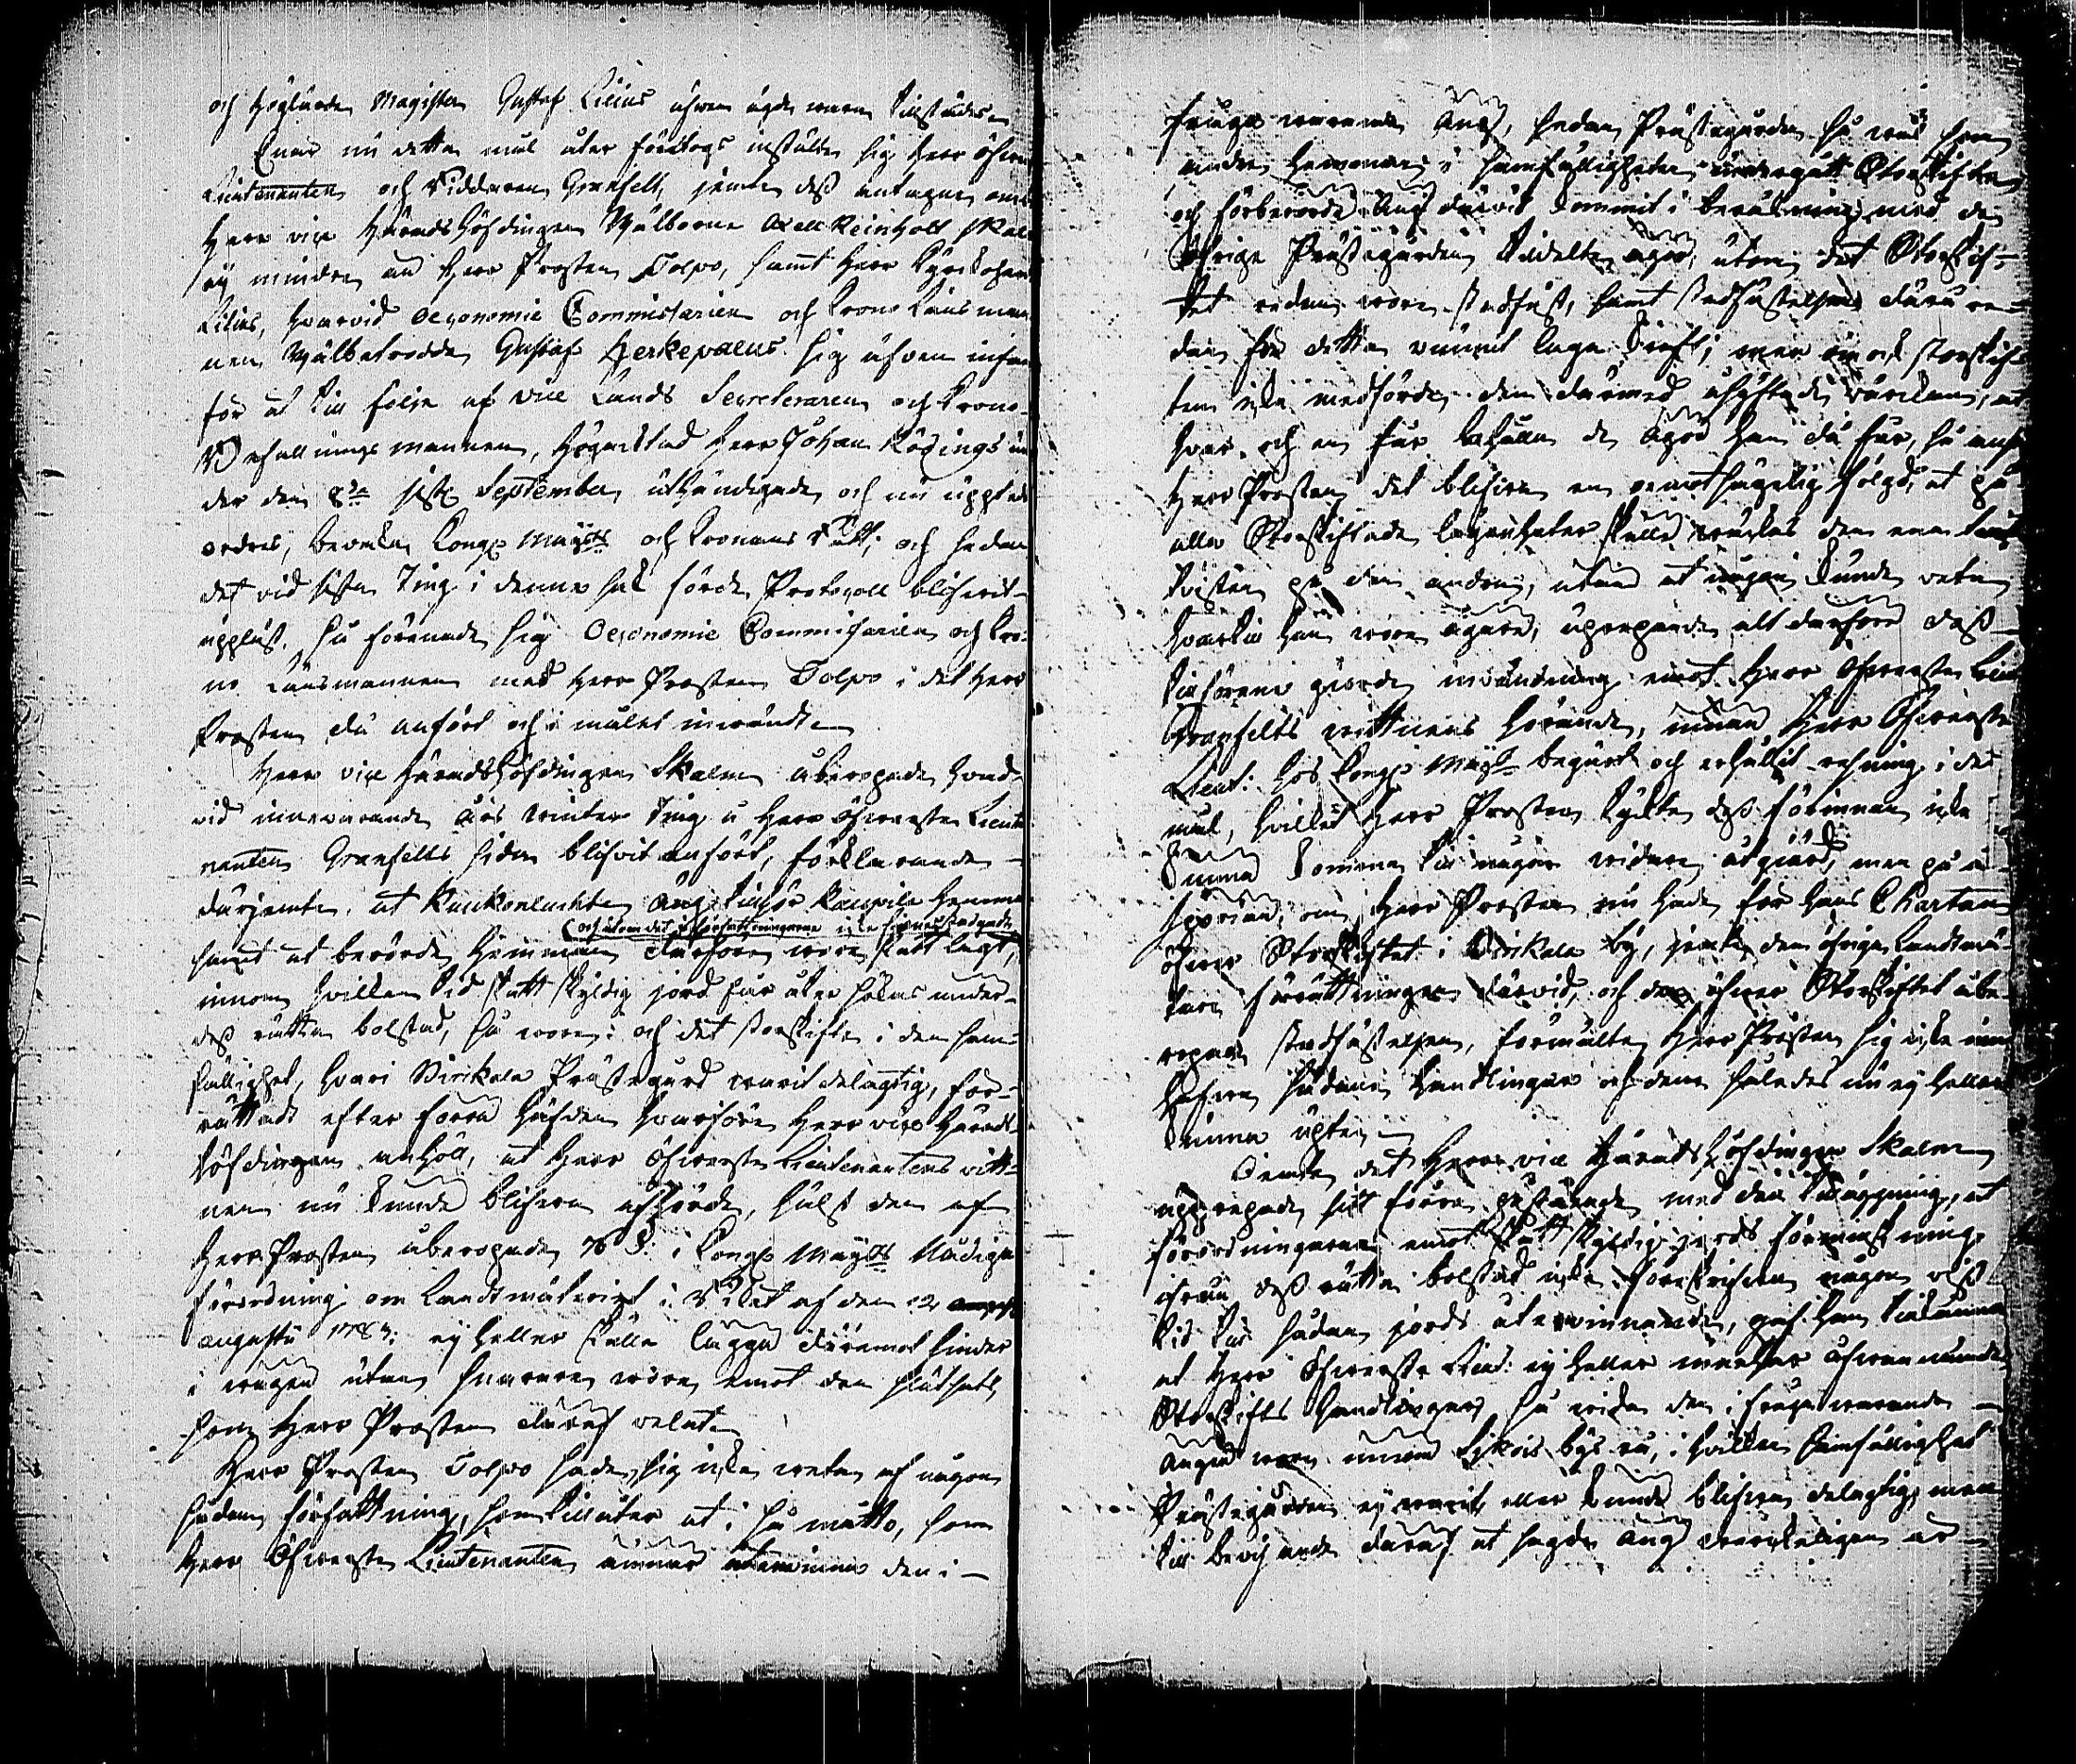 och Höglärde Magister Gustaf Lilius äfwen ägde wara tillstädes.
Enär nu detta mål åter företogs instälte sig Herr Öfwerste
Lieutenanten och Riddaren Granfelt, jemte dess antagne
Herr vice Häradshöfdingen Wälborne Axell Reinholt Skalm
ej mindre än Herr Prosten Tolpo, samt Herr Kyrckoherden
Lilius, hwarvid Oeconomie Commissarien och Krono Länsman
nen Wälbetrodde Gustaf Herkepaeus sig äfwen infan
för at till följe af vice Lands Secreteraren och Krono
Befallningsmannen, Högacktad Herr Johan Rösings un
der den 8de sistl. September uthändigade och nu upptedde
ordres, bevaka Kongl. Maij:ts och Kronans Rätt; och sedan
det vid sista Ting i denne sak förde Protocoll blifwit
uppläst, så förenade sig Oeconomie Commissarien och Kro-
no Länsmannen med Herr Prosten Tolpo i det Herr
Prosten då anfört och i målet inwändt.
Herr vice Häradshöfdingen Skalm åberopade hwad
vid innewarande Års Winter Ting å Herr Öfwerste Lieute
nanten Granfelts sida blifvit anfört, förklarande
därjemte, at Kuckonluchta Äng tillhör Kaupila Hemman
(och utom det i författningarne icke
samt at berörde Hemman därföre wore skattlagt,
innom hvilken tid skatt skyldig jord får åter sökas under
dess rätta bolstad, så wore och det storskifte i den sam-
fällighet, hvari Virikala Prästegård warit delagtig, för-
rättadt efter förra häfden hwarföre Herr vice Härads
höfdingen anhöll, at Herr Öfwerste Lieutenantens witt-
nen nu kunde blifwa afhörde, hälst den af
Herr Prosten åberopade 76 §. i Kongl. Maij:ts Nådiga
förordning om Landtmäteriet i Riket af den 12
augusti 1783. ej heller skulle lägga däremot hinder
i wägen utan snarare wore emot den slutsats,
som Herr Prosten däraf velat
Herr Prosten Tolpo sade sig icke weta af någon
sådan författning, som tillåter at i så måtto, som
Herr Öfwerste Lieutenanten ämnar återwinna den i
fråga warande Äng, sedan Prästegården så wäl som
andra Hemman i samfälligheten undergått Storskifte
och förberörde Äng därvid kommit i beräkning med de
öfrige Prästegården tilldelte ägor, utom det Storskif-
tet redan wore stadfäst, samt stadfästelsen därå re-
dan för detta vunnit laga kraft; men om ock storskif-
ten icke medförde den därmed åsyftade wärckan, at
hvar och en får behålla de ägor han då får, så anser
Herr Prosten det blifwa en oemotsägelig följd, at på
alla Storskiftade lägenheter skulle wäckas den ena
twisten på den andra, utan at någon kunde veta
hvartill han wore ägare, upprepande alt därföre dess
tillförene gjorde inwändning emot Herr Öfwerste Lieut.
Granfelts wittnens hörande, innan Herr Öfwerste
Lieut: hos Kongl. Maij:t begärt och erhållit resning i det
mål, hvillet Herr Prosten tyckte dess förinnan icke
kunna komma till någon widare åtgärd, men på
spörjan, om Herr Prosten nu hade för hand Chartan
öfwer Storskiftet i Virikala by, jemte den öfrige Landtmä-
tare förrättningen därvid, och den öfwer Storskiftet åbe-
ropade stadfästelsen, förmälte Herr Prosten sig icke nu
hafwa sådane Handlingar och dem således nu ej heller
kunna uptee.
Jemte det Herr vice Häradshöfdingen Skalm
upprepade sitt förra påstående med den tilläggning, at
förordningarne emot skatt skyldig jords förminskning
ifrån dess rätta bolstad icke föreskrifwa någon wiss
tid till sådan jords återwinnande, gaf han tillkänna
at Herr Öfwerste Lieut: ej heller innehar åfwannämde
Storskifts Handlingar, så wida den i fråga warande
Ängen wore innom Sykois bys rå, i hvilken Samfällighet
Prästegården ej warit eller kunde blifwa delagtig, men
till bevis ande däraf at sagde Äng werckeligen är